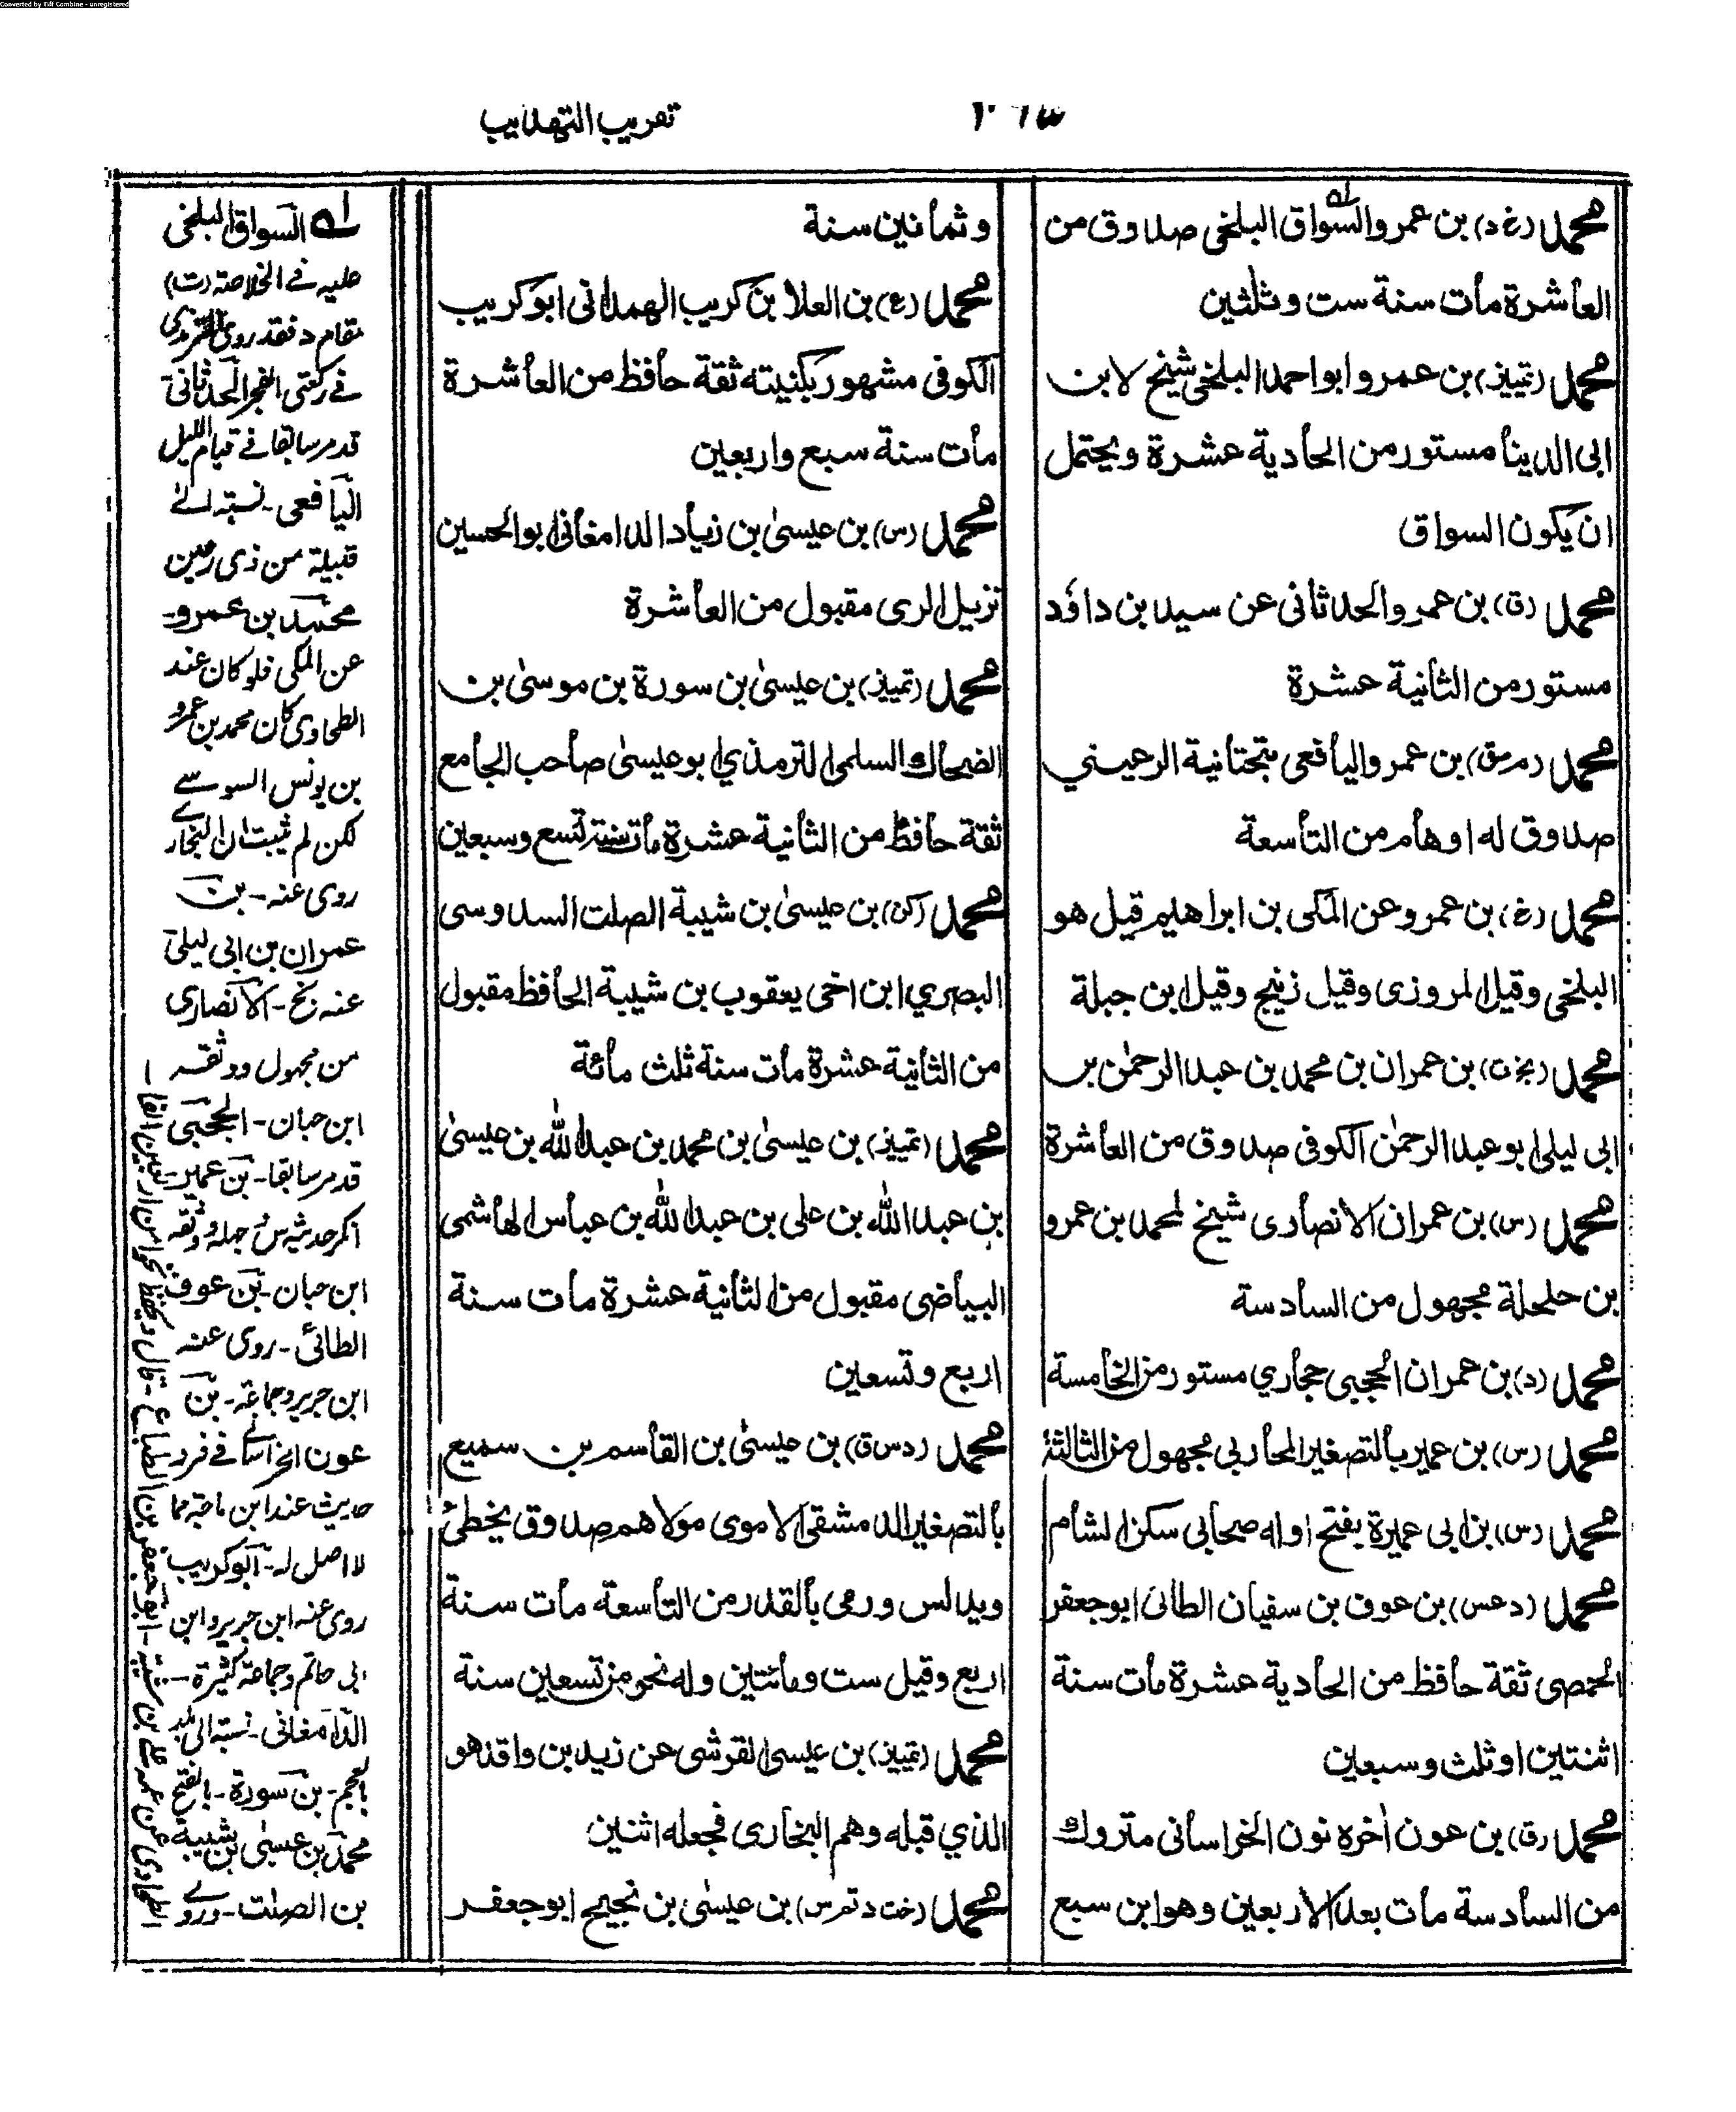 Converted by Tiff Combine - unregistered
تقريب التهذيب
محمد (خ د) بن عمرو السواق البلخى صدوق من
العاشرة مات سنة ست وثلثين
محمد (تمييز) بن عمرو ابواحمد البلخى شيخ لابن
ابى الدينا مستور من الحادية عشرة ويحتمل
ان يكون السواق
محمد (ق) بن عمرو الحدثانى عن سيد بن داؤد
مستور من الثانية عشرة
محمد (م س ق) بن عمرو اليافعى بتحتانية الرعيني
صدوق له اوهام من التاسعة
محمد (خ) بن عمرو عن المكى بن ابراهيم قيل هو
البلخى وقيل المروزى وقيل زنيج وقيل ابن جبلة
محمد (بخ ت) بن عمران بن محمد بن عبد الرحمٰن بن
ابى ليلى ابو عبد الرحمٰن الكوفى صدوق من العاشرة
محمد (س) بن عمران الانصارى شيخ لمحمد بن عمرو
بن حلحلة مجهول من السادسة
محمد (د) بن عمران الحجبى حجازي مستور من الخامسة
محمد (س) بن عمير بالتصغير المحاربي مجهول من الثالثة
محمد (س) بن ابى عميرة بفتح اوله صحابى سكن الشام
محمد (د عس) بن عوف بن سفيان الطائى ابو جعفر
الحمصى ثقة حافظ من الحادية عشرة مات سنة
اثنتين او ثلث وسبعين
محمد (ق) بن عون اٰخره نون الخراسانى متروك
من السادسة مات بعد الاربعين وهو ابن سبع
وثمانين سنة
محمد (ع) بن العلا بن كريب الهمدانى ابو كريب
الكوفى مشهور بكنيته ثقة حافظ من العاشرة
مات سنة سبع واربعين
محمد (س) بن عيسىٰ بن زياد الدامغانى ابو الحسين
نزيل الرى مقبول من العاشرة
محمد (تمييز) بن عيسىٰ بن سورة بن موسىٰ بن
الضحاك السلمى الترمذي ابو عيسىٰ صاحب الجامع
ثقة حافظ من الثانية عشرة مات سنة تسع وسبعين
محمد (كن) بن عيسىٰ بن شيبة الصلت السدوسى
البصري ابن اخى يعقوب بن شيبة الحافظ مقبول
من الثانية عشرة مات سنة ثلث مائة
محمد (تمييز) بن عيسىٰ بن محمد بن عبد الله بن عيسىٰ
بن عبد الله بن على بن عبد الله بن عباس الهاشمى
البياضى مقبول من الثانية عشرة مات سنة
اربع وتسعين
محمد (د س ق) بن عيسىٰ بن القاسم بن سميع
بالتصغير الدمشقى الاموى مولاهم صدوق يخطئ
ويدلس ورمى بالقدر من التاسعة مات سنة
اربع وقيل ست ومائتين وله نحو من تسعين سنة
محمد (تمييز) بن عيسى القرشى عن زيد بن واقد هو
الذي قبله وهم البخارى فجعله اثنين
محمد (خت د تم س) بن عيسىٰ بن نجيح ابو جعفر
السواق البلخى
عليه في الخلاصة (ت)
مقام د فقد روى عنه الترمذى
في ركعتى الفجر الحدثانى
قد مر سابقا في قيام الليل
اليافعى - نسبته الى
قبيلة من ذى رعين
محمد بن عمرو -
عن المكى فلو كان عند
الطحاوى كان محمد بن عمرو
بن يونس السوسى
لكن لم يثبت ان البخارى
روى عنه - بن
عمران بن ابى ليلى
عنه بخ - الانصارى
من مجهول ووثقه
ابن حبان - الحجبى
قد مر سابقا - بن عمير -
ابن حبان - بن عوف
الطائى - روى عنه
ابن جرير وجماعة - بن
عون الخراسانى في فرد
حديث عند ابن ماجة مما
لا اصل له - ابو كريب
روى عنه ابن جرير وابن
ابى حاتم وجماعة كثيرة -
الدامغانى - نسبته الى بلد
بالعجم - بن سورة - بالفتح
محمد بن عيسى بن شيبة
بن الصلت - وروى
الطحاوى عن محمد بن على بن شيبة - ابو جعفر بن الطباع - قال